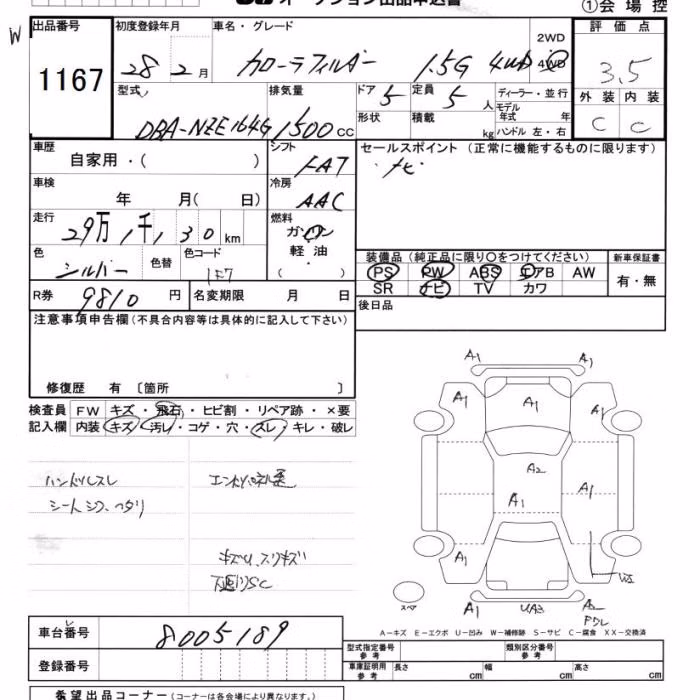 オークション出品申込書
①会場控
W
出品番号
1167
初度登録年月
28 2月
車名・グレード
カローラフィルダー 1.5G 4WD
2WD
4WD
評価点
3.5
型式
DBA-NZE164G
排気量
1500cc
ドア
5
定員
5人
ディーラー・並行
モデル
年式 年
形状
積載
kg
ハンドル 左・右
外装
内装
C
C
車歴
自家用・( )
シフト
FAT
セールスポイント(正常に機能するものに限ります)
ナビ
車検
年 月( 日)
冷房
AAC
走行
29万,千,30 km
燃料
ガソリン
軽油
・( )
色
シルバー
色替
色コード
1F7
装備品(純正品に限り〇をつけてください)
新車保証書
PS PW ABS エアB AW
SR ナビ TV カワ
有・無
R券
9810円
名変期限 月 日
後日品
注意事項申告欄(不具合内容等は具体的に記入して下さい)
修復歴 有 〔箇所 〕
検査員
記入欄
FW キズ・飛石・ヒビ割・リペア跡・×要
内装 キズ・汚レ・コゲ・穴・スレ・キレ・破レ
ハンドルスレ
シートシワ、ヘタリ
キズU、スリキズ
下廻りSC
A1 A1
A1 A1 A1
A2
A1 A1
A1
A1 UA3 A2
スペア
A-キズ E-エクボ U-凹み W-補修跡 S-サビ C-腐食 XX-交換済
車台番号
8005189
登録番号
型式指定番号
参考
類別区分番号
参考
車庫証明用
参考
長さ cm
幅 cm
高さ cm
希望出品コーナー(コーナーは各会場により異なります。)